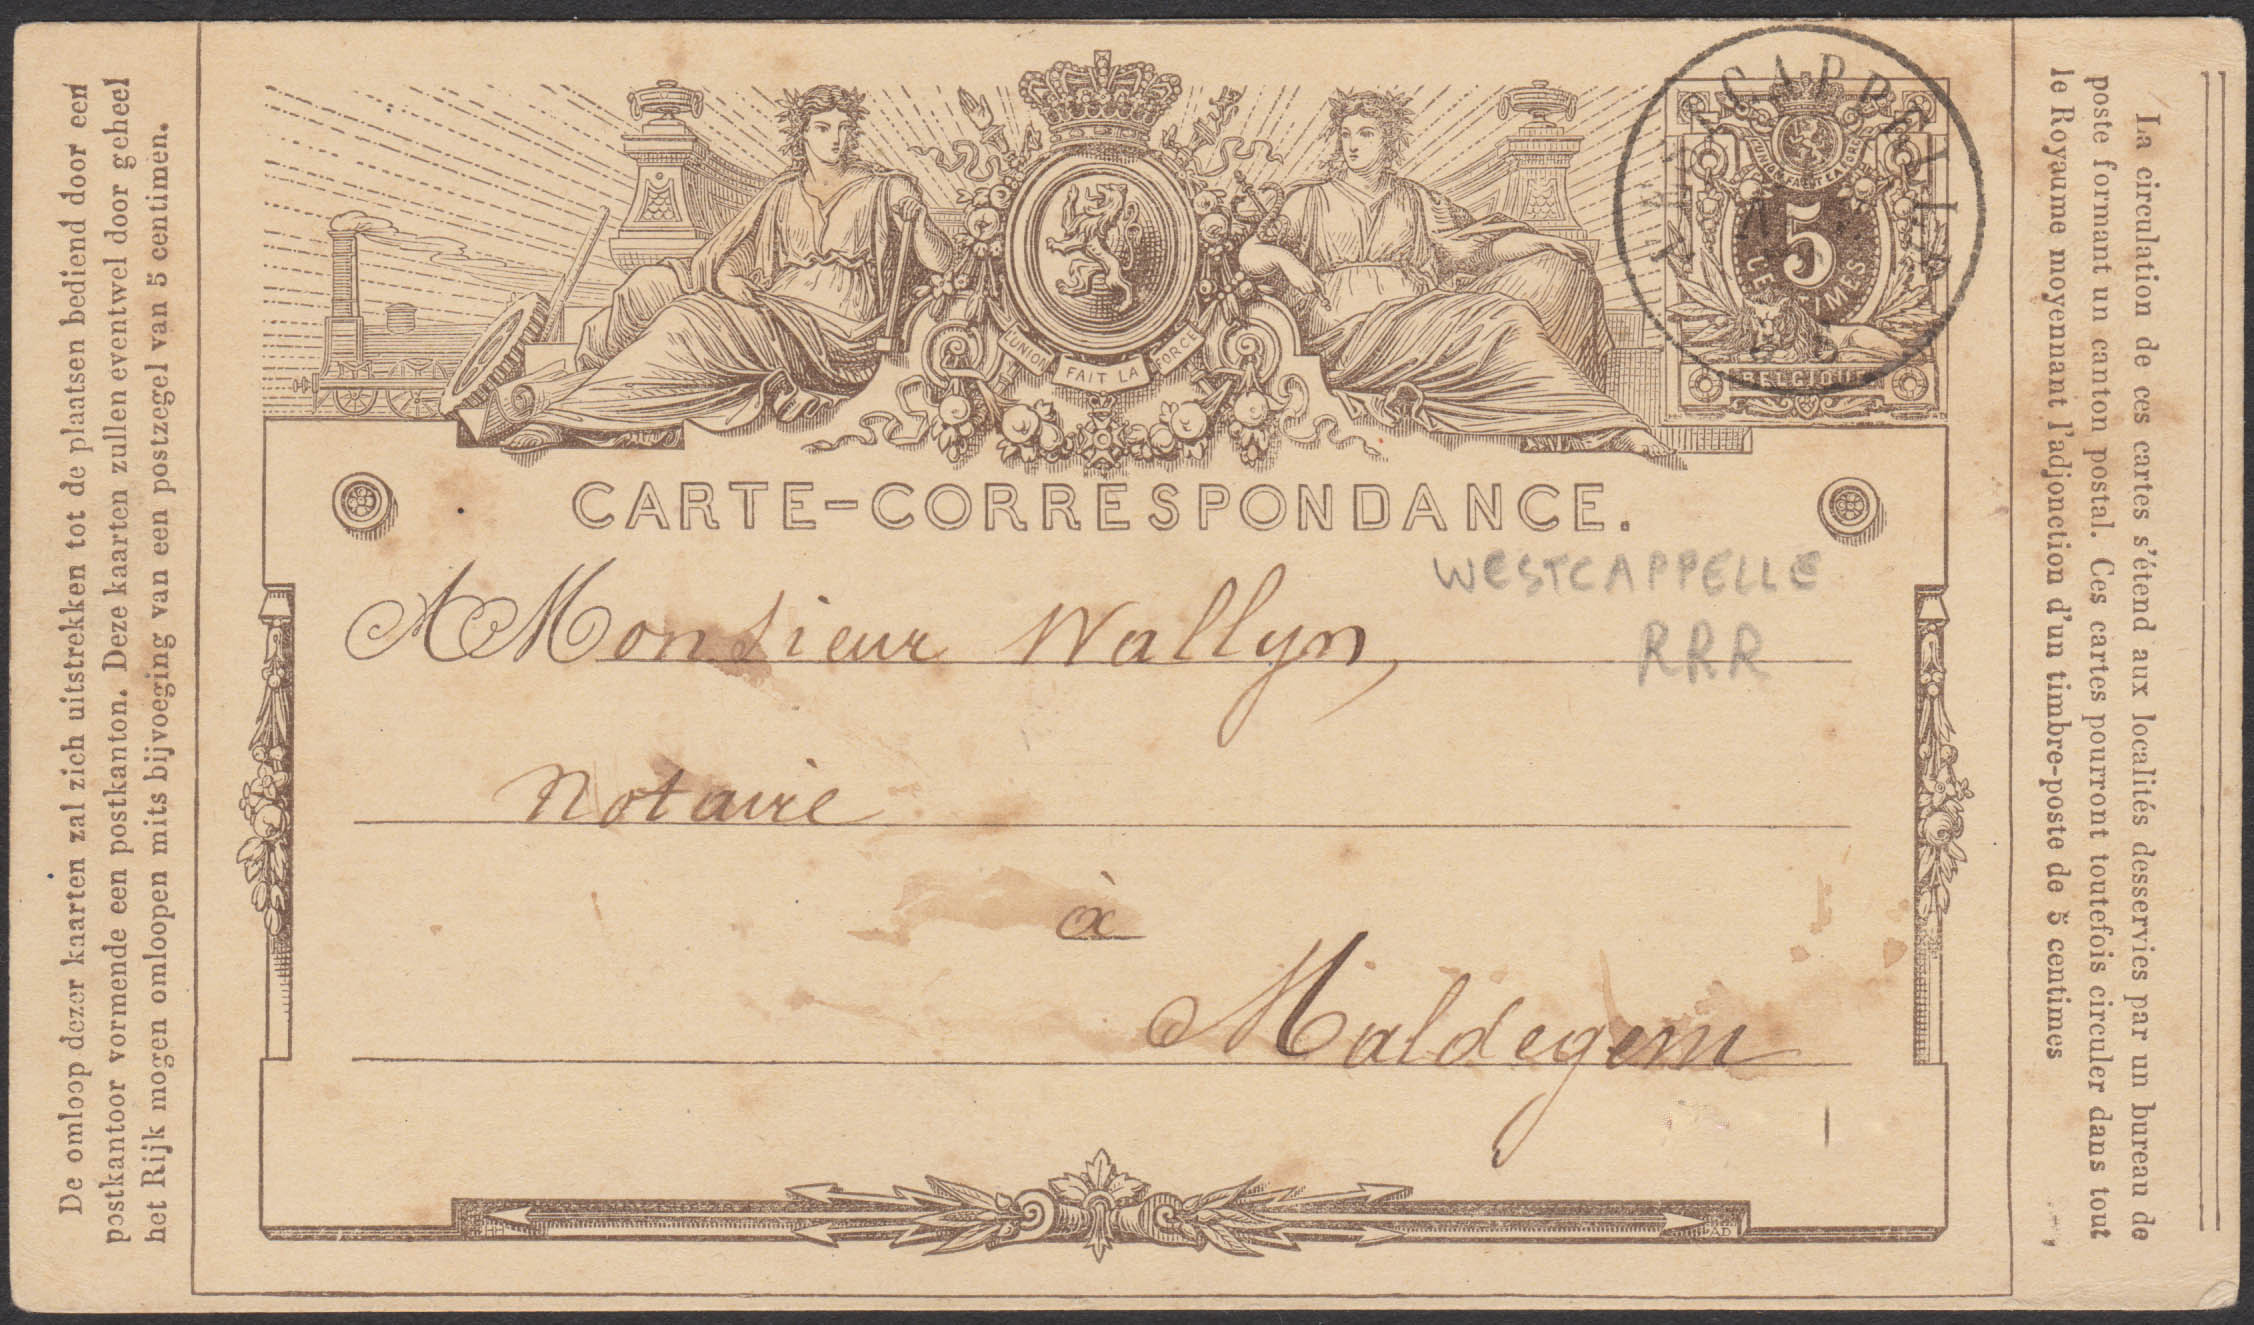 De omloop dezer kaarten zal zich uitstrekken tot de plaatsen bediend door een
postkantoor vormende een postkanton. Deze kaarten zullen eventwel door geheel
het Rijk mogen omloopen mits bijvoeging van een postzegel van 5 centimen.
L'UNION FAIT LA FORCE
L'UNION FAIT LA FORCE
5
CENTIMES
BELGIQUE
CARTE-CORRESPONDANCE.
WESTCAPPELLE
RRR
A Monsieur Wallyn,
Notaire
à
Maldegem
HH
AD
La circulation de ces cartes s'étend aux localités desservies par un bureau de
poste formant un canton postal. Ces cartes pourront toutefois circuler dans tout
le Royaume moyennant l'adjonction d'un timbre-poste de 5 centimes